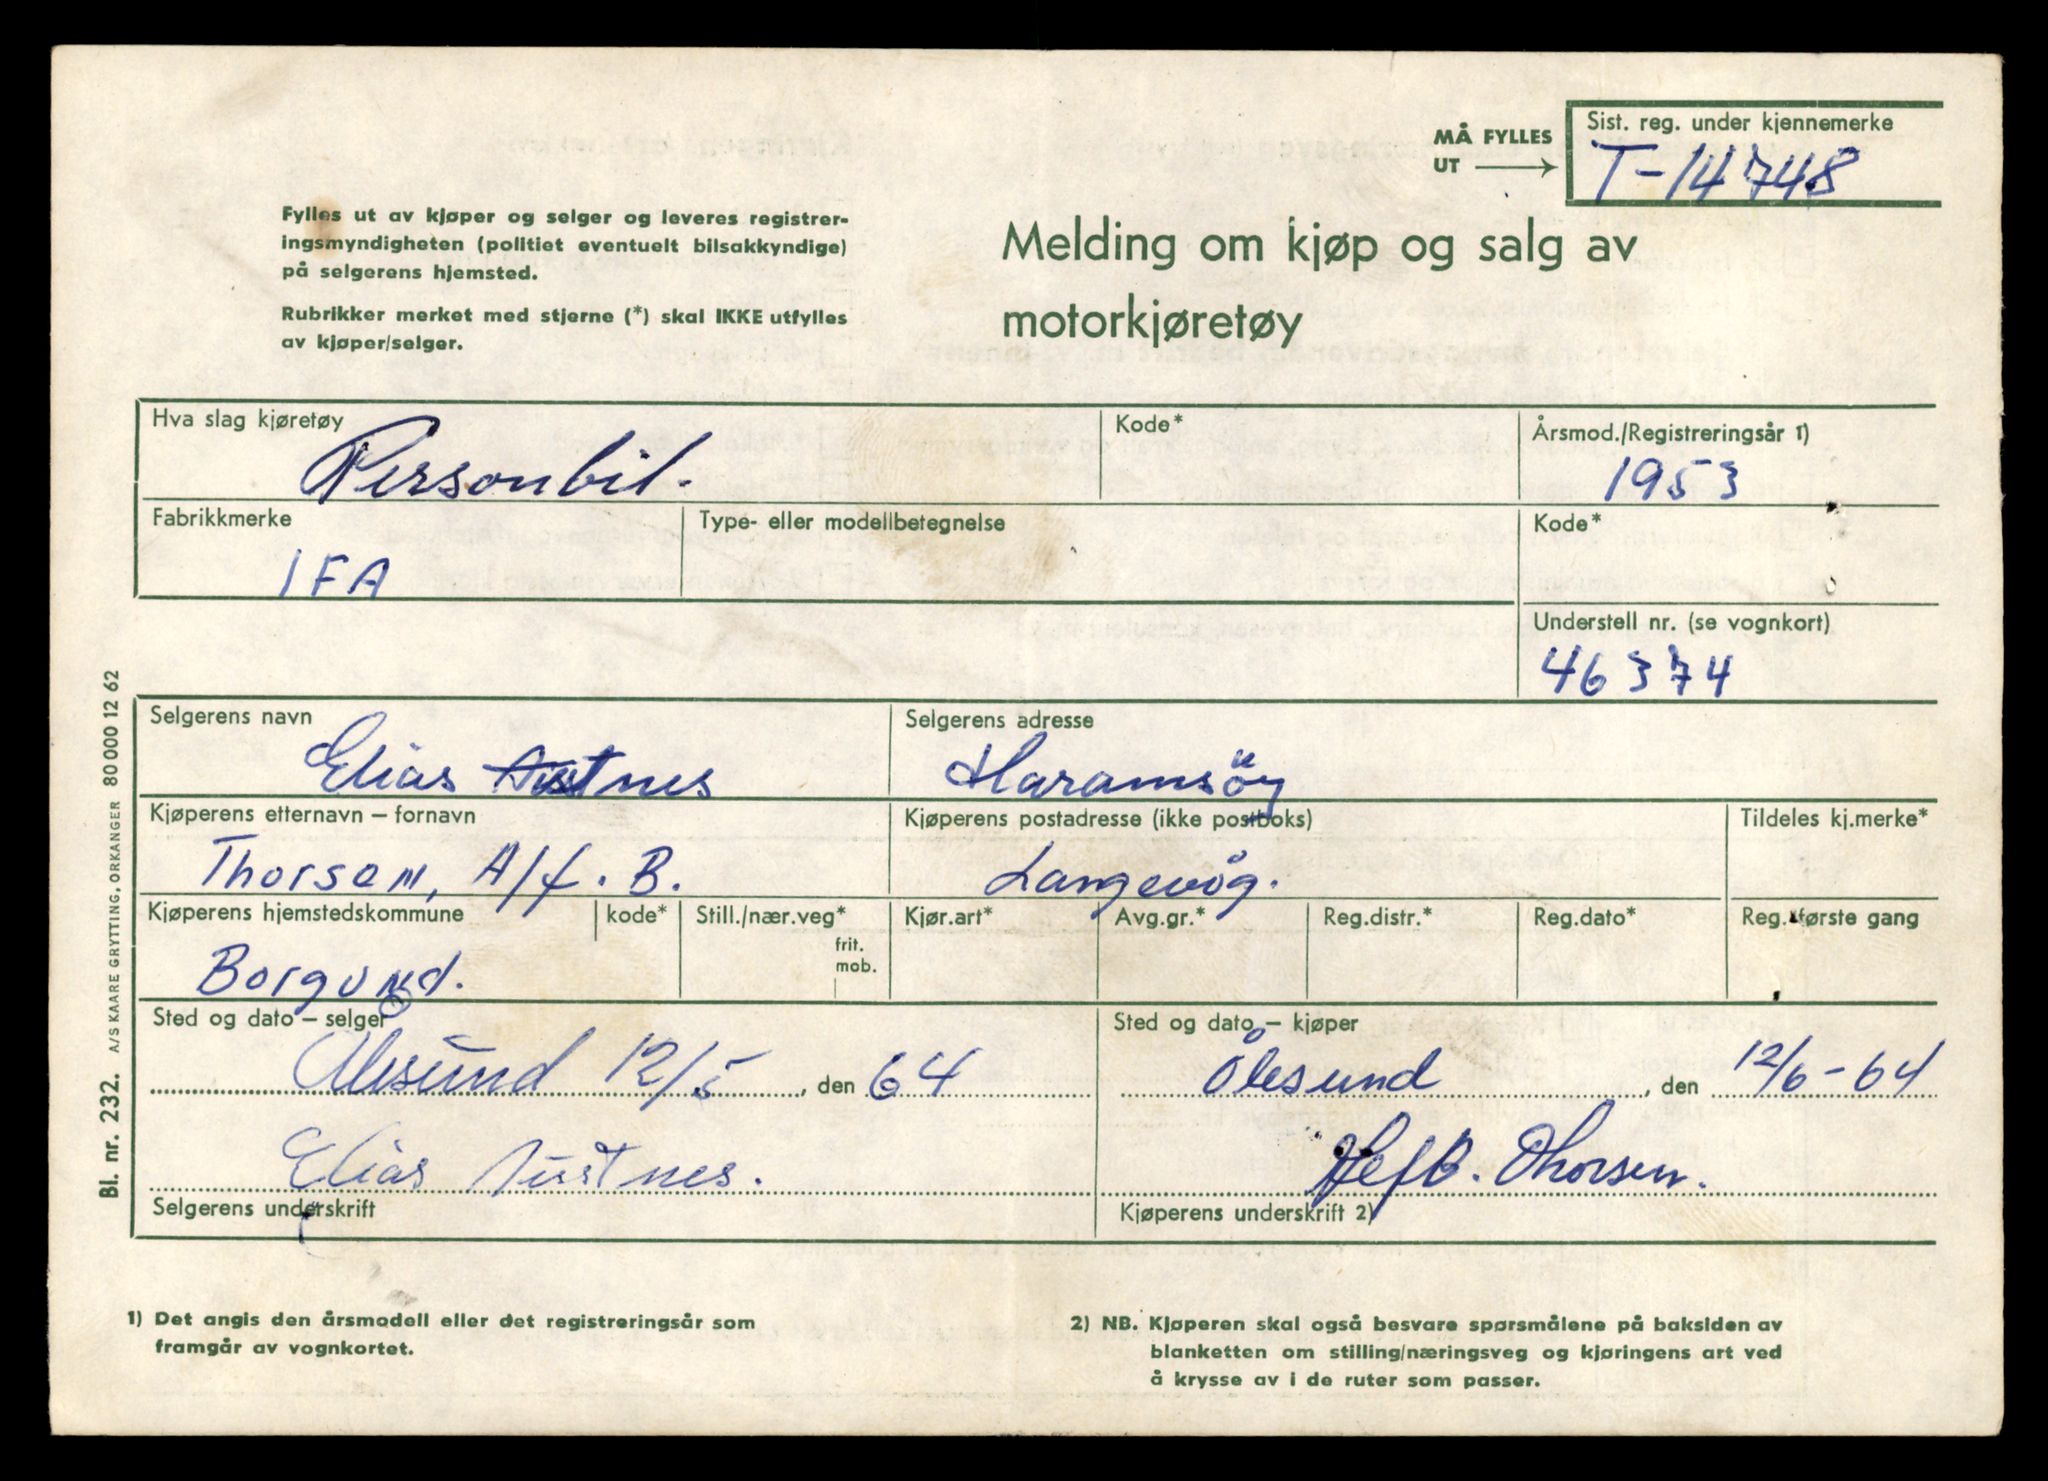 MÅ FYLLES
UT
Sist. reg. under kjennemerke
T-14748
Fylles ut av kjøper og selger og leveres registrer-
ingsmyndigheten (politiet eventuelt bilsakkyndige)
på selgerens hjemsted.
Rubrikker merket med stjerne (*) skal IKKE utfylles
av kjøper/selger.
Melding om kjøp og salg av
motorkjøretøy
Hva slag kjøretøy
Personbil.
Kode*
Årsmod./Registreringsår 1)
1953
Fabrikkmerke
IFA
Type- eller modellbetegnelse
Kode*
Understell nr. (se vognkort)
46374
Selgerens navn
Elias Austnes
Selgerens adresse
Haramsöy
Kjøperens etternavn – fornavn
Thorsen, A/f. B.
Kjøperens postadresse (ikke postboks)
Langevåg.
Tildeles kj.merke*
Kjøperens hjemstedskommune
Borgund.
kode*
Still./nær.veg*
frit.
mob.
Kjør.art*
Avg.gr.*
Reg.distr.*
Reg.dato*
Reg. første gang
Sted og dato – selger
Ålesund 12/5, den 64
Sted og dato – kjøper
Ålesund, den 12/6-64
Elias Austnes.
Selgerens underskrift
B. Thorsen.
Kjøperens underskrift 2)
1) Det angis den årsmodell eller det registreringsår som
framgår av vognkortet.
2) NB. Kjøperen skal også besvare spørsmålene på baksiden av
blanketten om stilling/næringsveg og kjøringens art ved
å krysse av i de ruter som passer.
Bl. nr. 232. A/S KAARE GRYTTING, ORKANGER 80 000 12 62